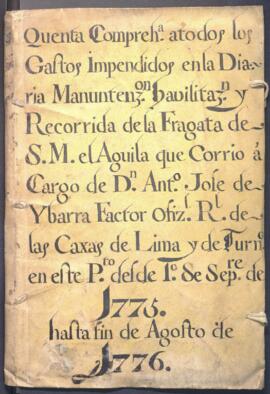 Quenta Compreh.ª atodos los
Gastos Impendidos en la Dia-
ria Manuntenz.on havilitaz.n y
Recorrida de la Fragata de
S. M. el Aguila que Corrio á
Cargo de D.n Ant.o Josse de
Ybarra Factor Ofiz.l R.l de
las Caxas de Lima y de Turn.o
en este P.to desde 1.o de Sep.re de
1775.
hasta fin de Agosto de
1776.